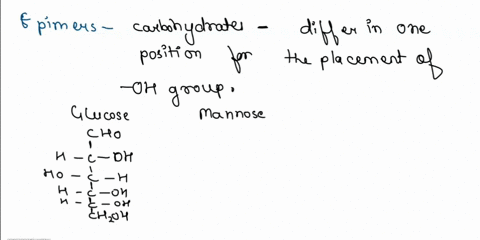 Epimers - carbohydrates - differ in one
position for the placement of
-OH group.
Glucose Mannose
CHO
H - C - OH
HO - C - H
H - C - OH
H - C - OH
CH2OH